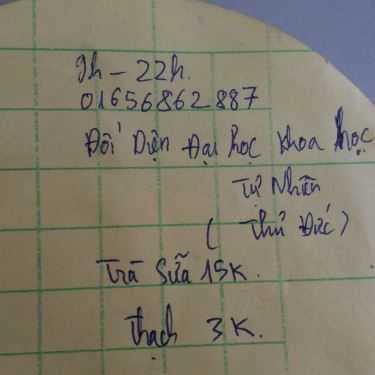 9h - 22h.
01656862887
Đối Diện Đại học Khoa học
Tự Nhiên
( Thủ Đức )
Trà Sữa 15K.
Thạch 3K.